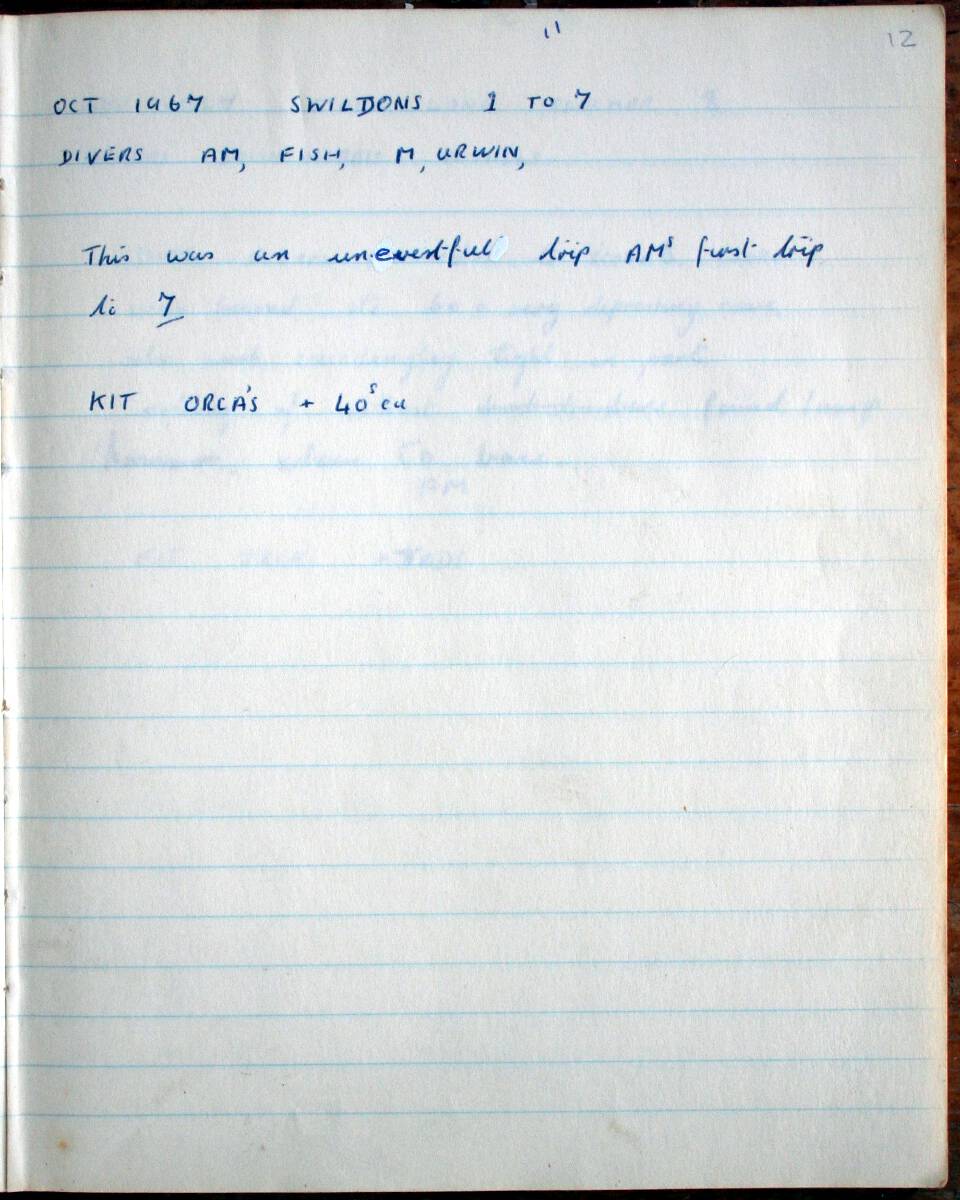 11
12
OCT 1967 SWILDONS 1 TO 7
DIVERS AM, FISH, M, URWIN,
This was an unevestful trip AMs first trip
to 7
KIT ORCA'S + 40s cu